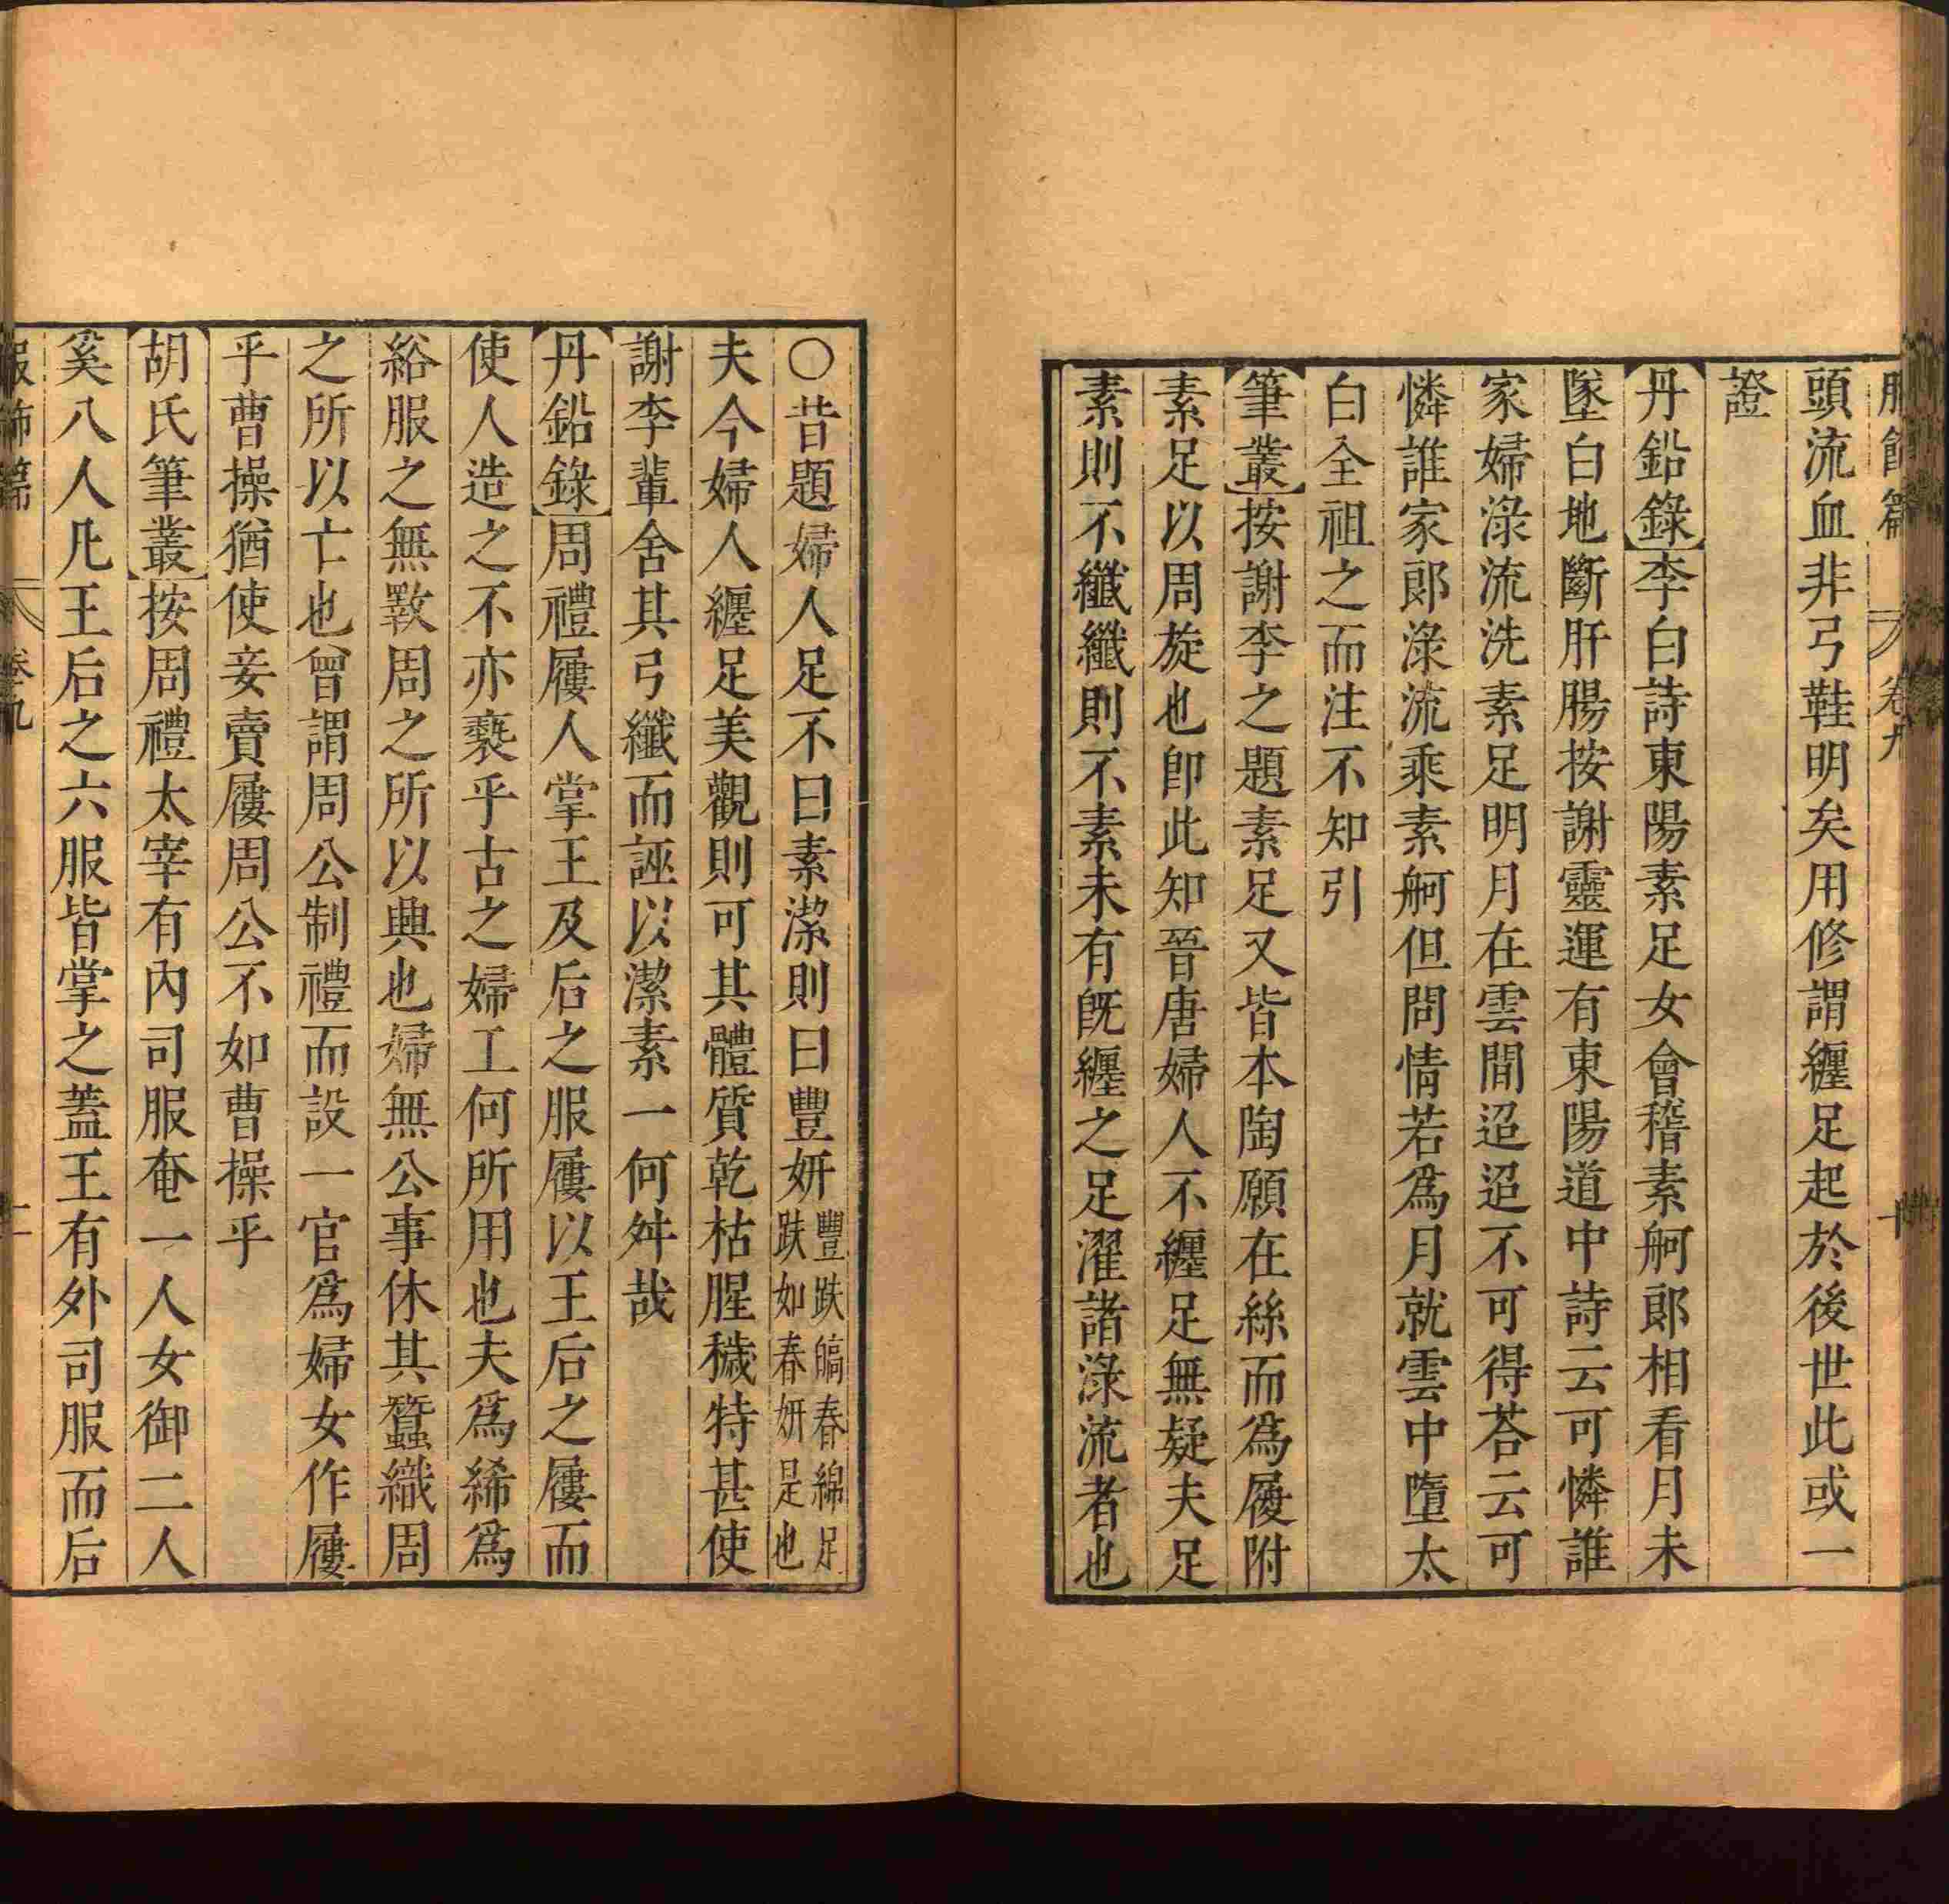 服飾篇 卷九 十
頭流血非弓鞋明矣用修謂纏足起於後世此或一
證
丹鉛錄李白詩東陽素足女會稽素舸郎相看月未
墜白地斷肝腸按謝靈運有東陽道中詩云可憐誰
家婦淥流洗素足明月在雲間迢迢不可得荅云可
憐誰家郎淥流乘素舸但問情若爲月就雲中墮太
白全祖之而注不知引
筆叢按謝李之題素足又皆本陶願在絲而爲履附
素足以周旋也卽此知晉唐婦人不纏足無疑夫足
素則不纖纖則不素未有旣纏之足濯諸淥流者也
○昔題婦人足不曰素潔則曰豐妍豐趺皜春綿足
趺如春妍是也
夫今婦人纏足美觀則可其體質乾枯腥穢特甚使
謝李輩舍其弓纖而誣以潔素一何舛哉
丹鉛錄周禮屨人掌王及后之服屨以王后之屨而
使人造之不亦褻乎古之婦工何所用也夫爲絺爲
綌服之無斁周之所以興也婦無公事休其蠶織周
之所以亡也曾謂周公制禮而設一官爲婦女作屨
乎曹操猶使妾賣屨周公不如曹操乎
胡氏筆叢按周禮太宰有內司服奄一人女御二人
奚八人凡王后之六服皆掌之蓋王有外司服而后
服飾篇 卷九